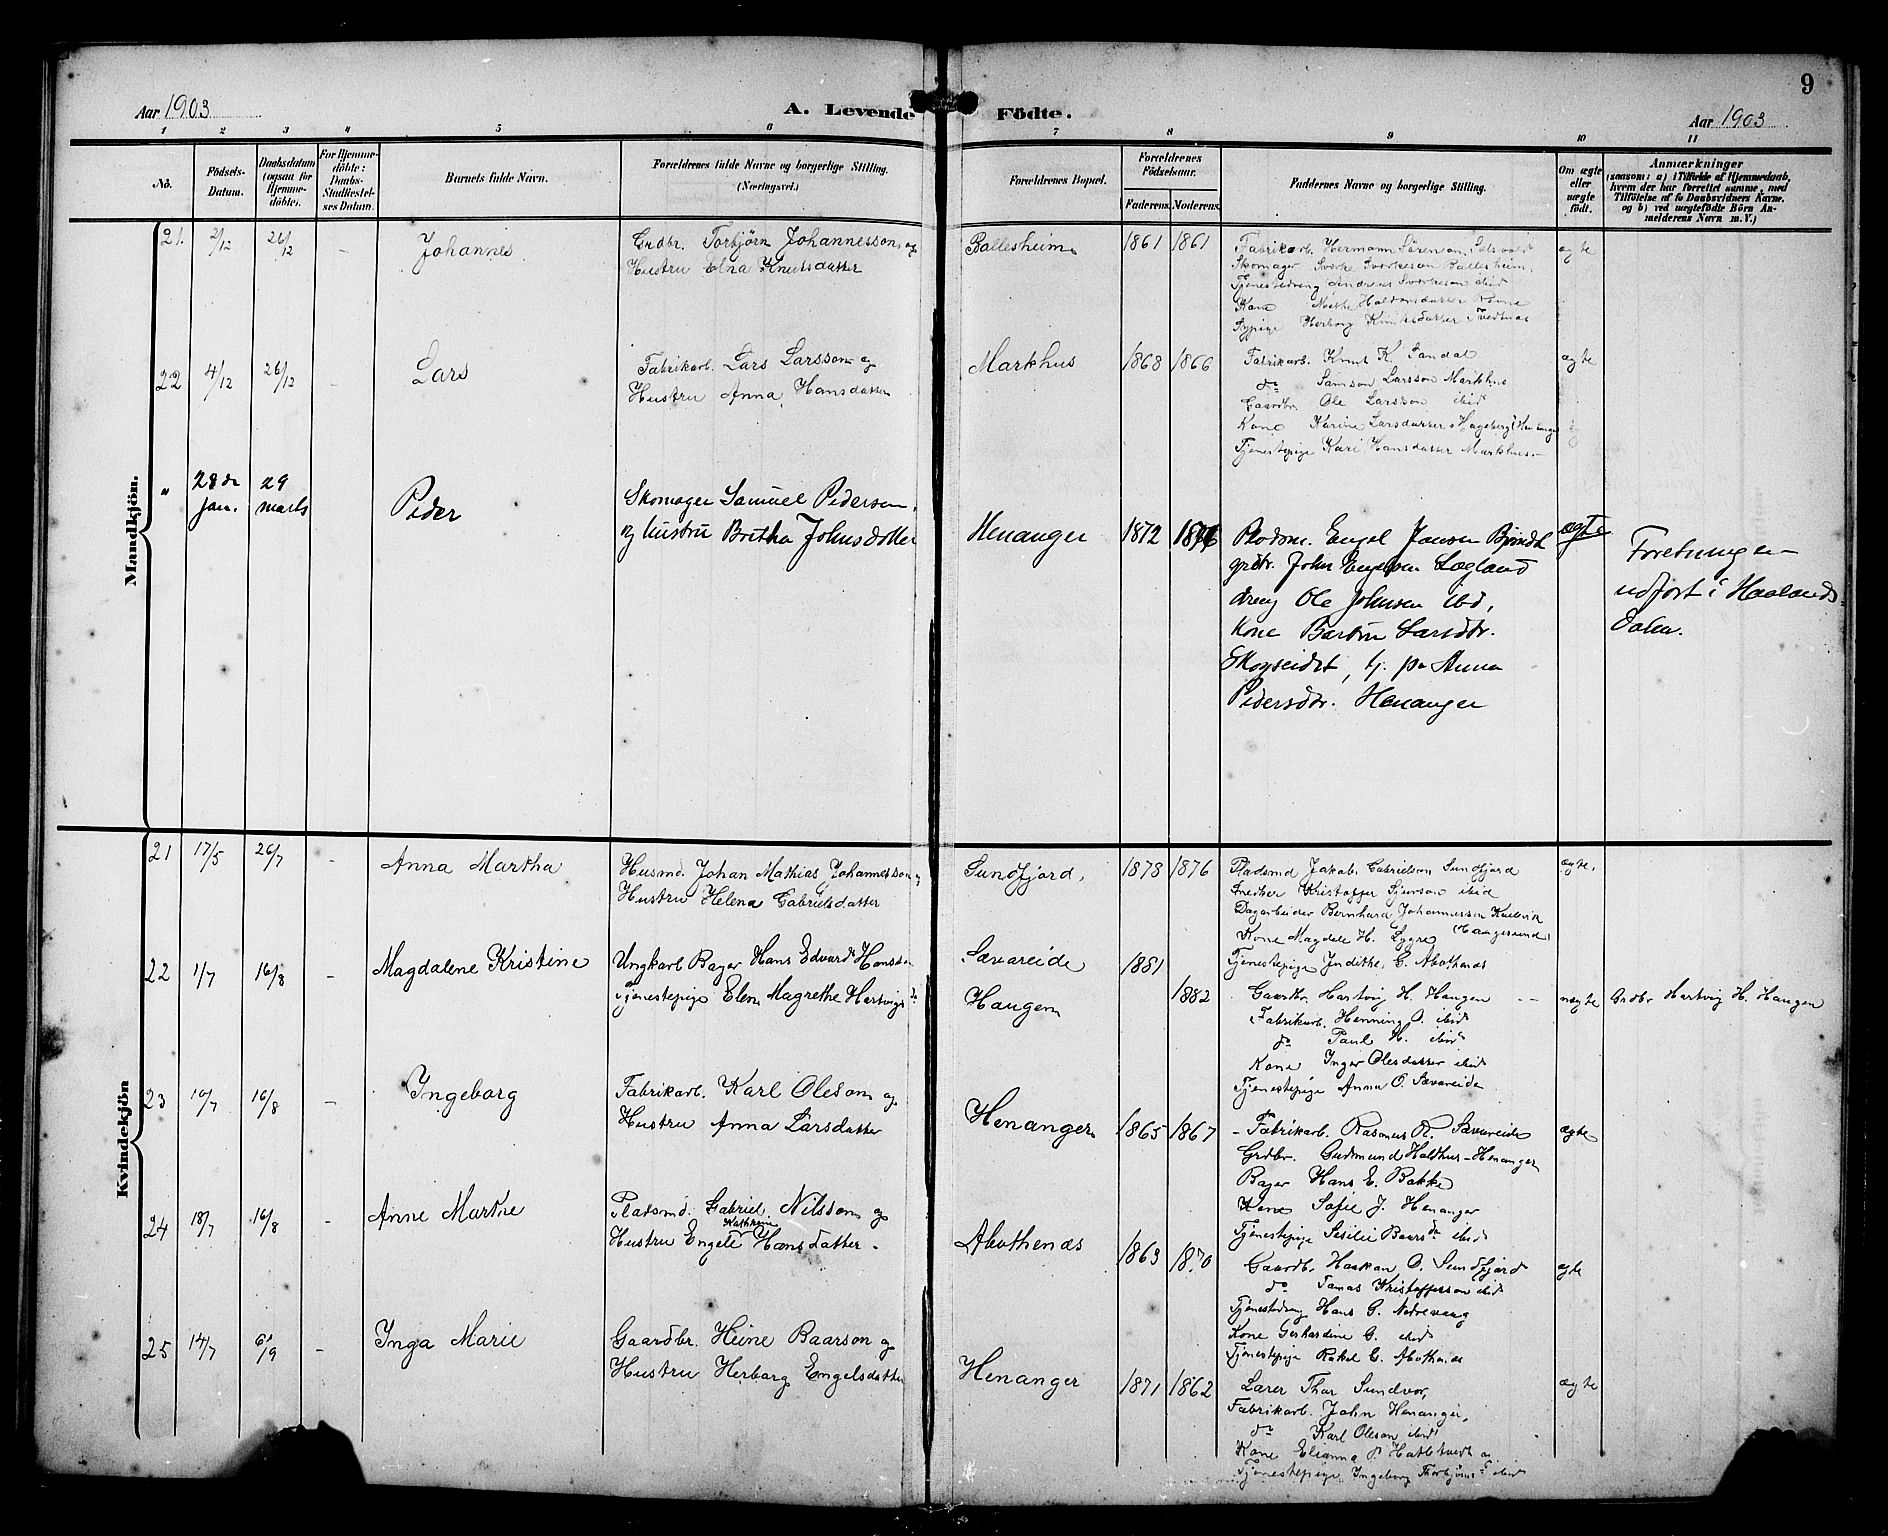 9
Aar 1903 A. Levende Födte. Aar 1903
1 2 3 4 5 6 7 8 9 10 11
No.
Födsels-
Datum.
Daabsdatum
(ogsaa for
Hjemme-
döbte).
For Hjemme-
döbte:
Daabs-
Stadfæstel-
ses Datum.
Barnets fulde Navn.
Forældrenes fulde Navne og borgerlige Stilling.
(Næringsvei.)
Forældrenes Bopæl.
Forældrenes
Födselsaar.
Faderens. Moderens.
Faddernes Navne og borgerlige Stilling.
Om ægte
eller
uægte
födt.
Anmærkninger
(saasom: a) i Tilfælde af Hjemmedaab,
hvem der har forrettet samme, med
Tilföielse af to Daabsvidners Navne.
og b) ved uægtefödte Börn An-
melderens Navn m. V.)
Mandkjön.
21. 2/12 26/12 - Johannes
Grdbr. Torbjörn Johannesson og
Hustru Elna Knutsdatter
Ballesheim 1861 1861
Fabrikarb. Hermann Sörenson
Skomager Sverke Sverkeson Ballesheim
Tjenestedreng Andreas Sverkeson ibid
Kone Haldorsdatter
Sypige Herborg Knutsdatter Tvedtnæs
ægte
22 4/12 26/12 - Lars
Fabrikarb. Lars Larsson og
Hustru Anna Hansdatter
Markhus 1868 1866
Fabrikarb. Knut K. Sandal
do Samson Larsson Markhus
Gaardbr. Ole Larsson ibid
Kone Karine Larsdatter Hageberg
Tjenestepige Kari Hansdatter Markhus
ægte
" 28de
jan. 29
marts Peder
Skomager Samuel Pedersen
og hustru Britha Johnsdotter
Henanger 1872
Plodsm. Engel Jansen
grdbr. John Engelsen Lægland
dreng Ole Johnsen ibd,
Kone Larsdtr.
Skogseidet, tj. pe Anna
Pedersdtr. Henanger
ægte
Foretningen
udfort i Haalands-
dalen.
Kvindekjön
21 17/5 26/7 - Anna Martha
Husmd. Johan Mathias Johannesson og
Hustru Helena Gabrielsdatter
Sundfjord, 1878 1876
Pladsmd Jakob Gabrielson Sundfjord
Snedker Kristoffer Sjurson ibid
Dagarbeider Bernhard Johannesson
(Haugesund)
Kone Magdele H. Lygre
Tjenestepige Judithe G. Abothenæs
ægte.
22 1/7 16/8 - Magdalene Kristine
Ungkarl Bager Hans Edvard Hansson
Tjenestepige Elen Magrethe Hartvigsdr
Sævareide 1881
Haugen 1882
Gaardbr. Hartvig H. Haugen
Fabrikarb. Henning O. ibid
do Paul H. ibid
Kone Inger Olesdatter ibid
Tjenestepige Anna O. Sævareide
uægte Grdbr Hartvig H. Haugen
23 10/7 16/8 - Ingeborg
Fabrikarb. Karl Oleson og
Hustru Anna Larsdatter
Henanger 1865 1867
- Fabrikarb. Rasmus R. Sævareide
Grdbr. Gudmund Henanger
Bager Hans E. Bakke
Kone Sofie J. Henanger
Tjenestepige Sesilie Baarsdr ibid
ægte
24 18/7 16/8 - Anne Marthe
Platsmd. Gabriel Nilsson og
Kathrine
Hustru Engele Hansdatter.
Abothenæs 1863 1870
Gaardbr. Haakon O. Sundfjord
do Tomas Kristofferson ibid
Tjenestedreng Hans G. Nedrevaag
Kone Gerhardine G. ibid
Tjenestepige Rakel G. Abothenæs
ægte
25 14/7 6/9 - Inga Marie
Gaardbr. Heine Baarson og
Hustru Herborg Engelsdatter
Henanger 1871 1862
Lærer Thor Sundvor,
Fabrikarb. John Henanger,
do Karl Oleson ibid
Kone Elianna P. Hatletvedt og
Tjenestepige Ingeborg ibid
ægte